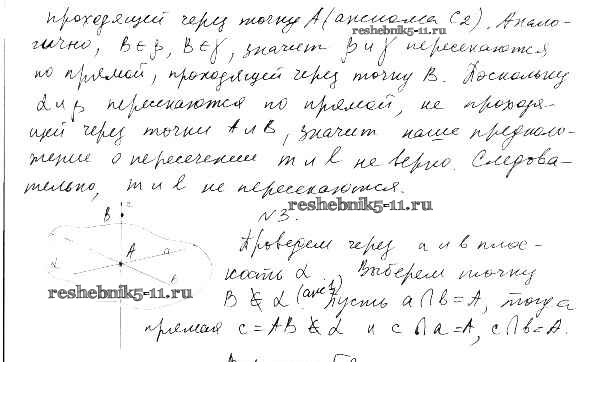 проходящей через точку A (аксиома C2). Анало-
reshebnik5-11.ru
гично, B ∈ β, B ∈ γ, значит β и γ пересекаются
по прямой, проходящей через точку B. Поскольку
α и β пересекаются по прямой, не проходя-
щей через точки A и B, значит наше предполо-
жение о пересечении m и l не верно. Следова-
тельно, m и l не пересекаются.
reshebnik5-11.ru
N3.
c
B
A
a
α
b
reshebnik5-11.ru
Проведем через a и b плос-
кость α. Выберем точку
B ∉ α (акс. 1). Пусть a ∩ b = A, тогда
прямая c = AB ⊄ α и c ∩ a = A, c ∩ b = A.